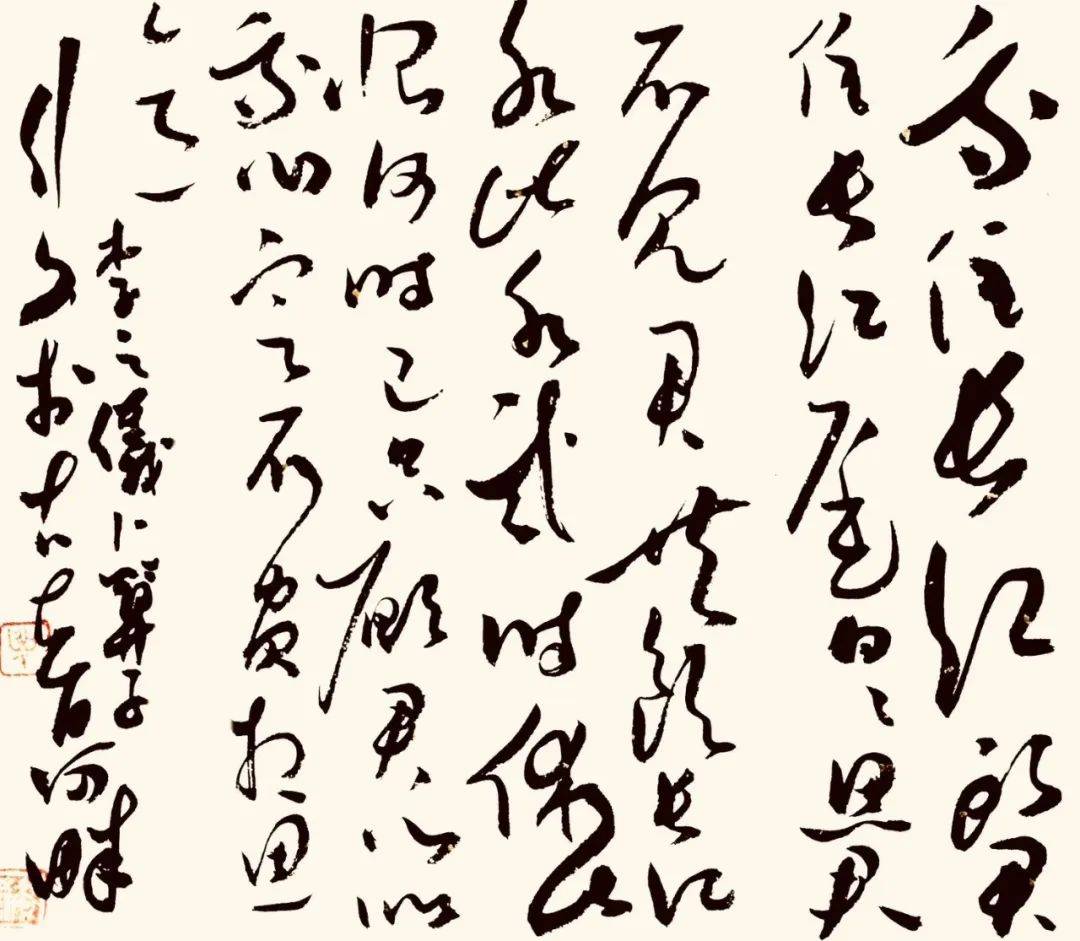 我住長江頭君
住長江尾日〻思君
不見君共飲長江
水此水幾時休此
恨何時已只願君心似
我心定不負相思
意 李之儀卜算子
於古黃河畔